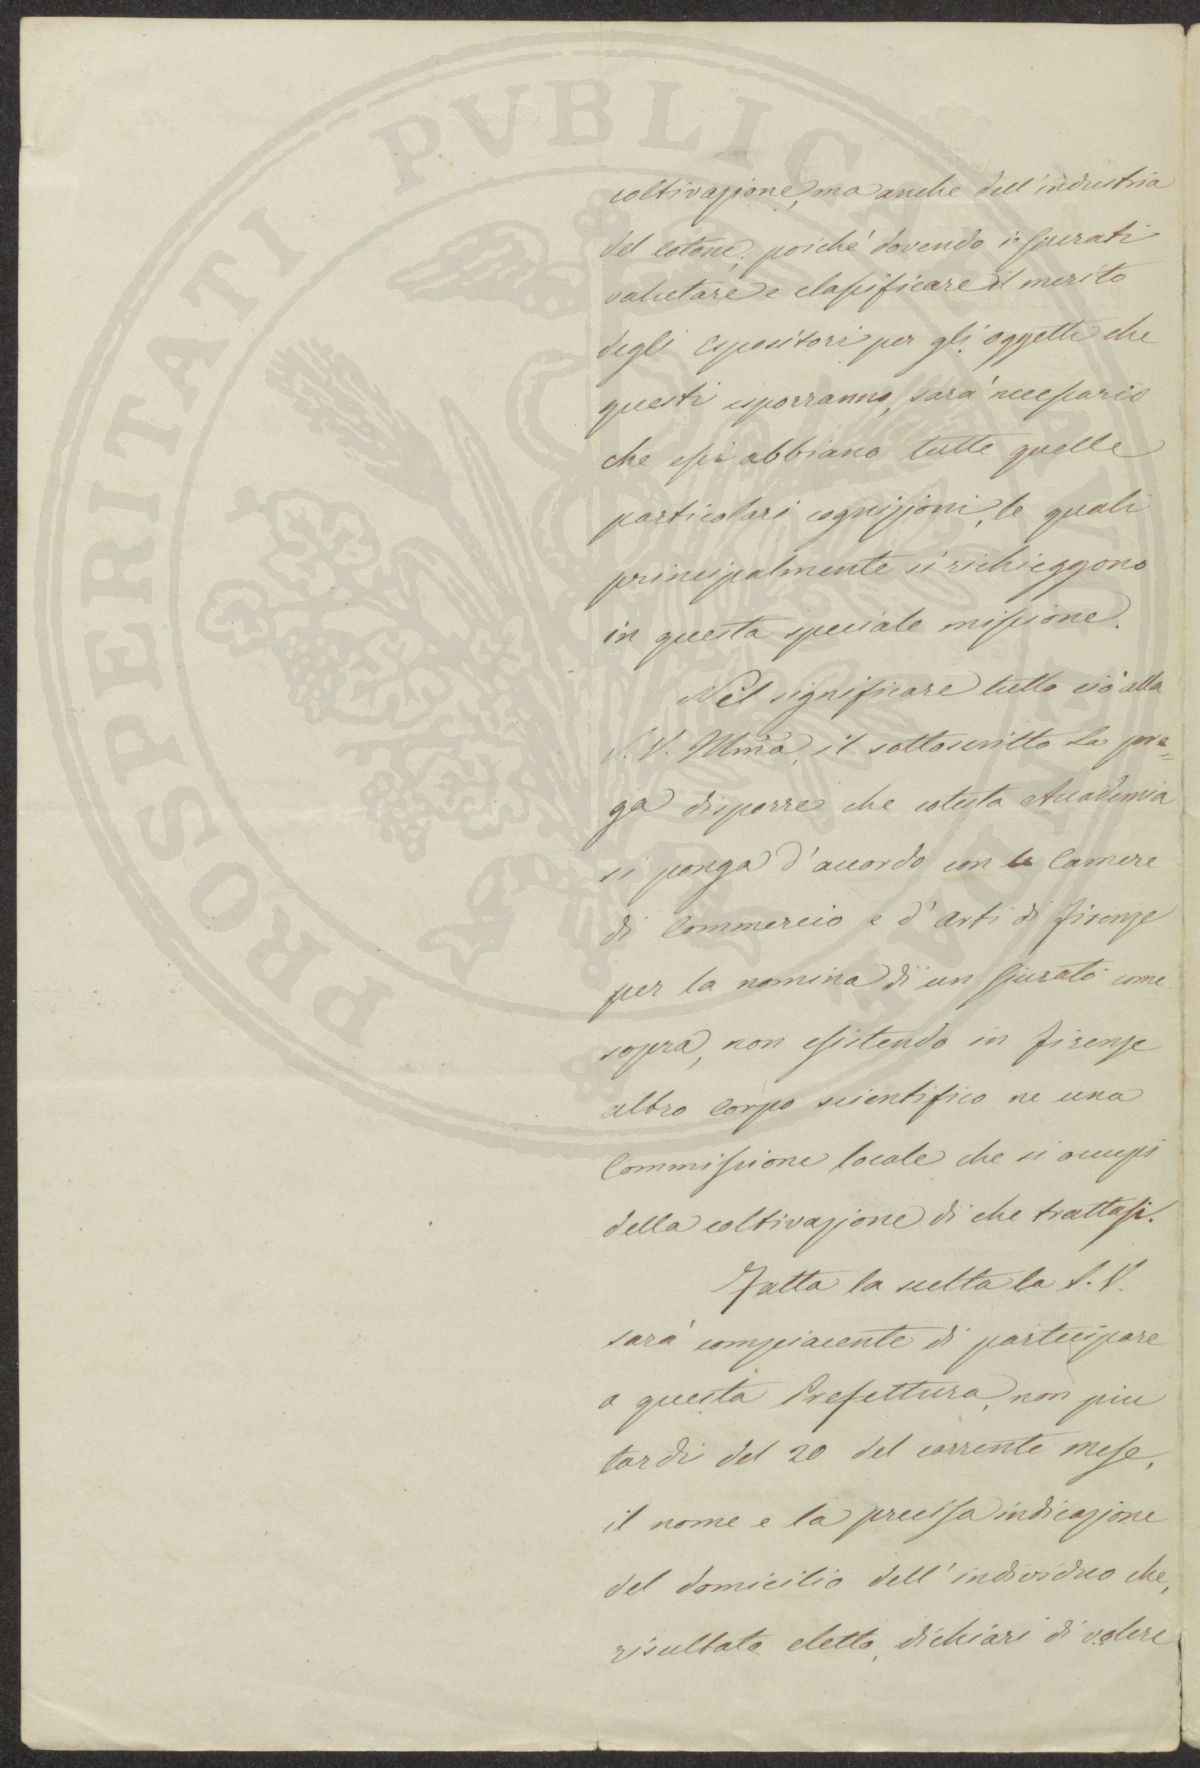 coltivazione, ma anche dell'industria
del cotone, poiché dovendo i Giurati
valutare e classificare il merito
degli Espositori per gli oggetti che
questi esporranno, sarà necessario
che essi abbiano tutte quelle
particolari cognizioni, le quali
principalmente si richieggono
in questa speciale missione.
Nel significare tutto ciò alla
S. V. Illma, il sottoscritto La pre=
ga disporre che cotesta Accademia
si ponga d'accordo con le Camere
di Commercio e d'Arti di Firenze
per la nomina di un Giurato come
sopra, non esistendo in Firenze
altro Corpo scientifico ne una
Commissione locale che si occupi
della coltivazione di che trattasi.
Fatta la scelta la S. V.
sarà compiacente di partecipare
a questa Prefettura, non piu
tardi del 20 del corrente mese,
il nome e la precisa indicazione
del domicilio dell'individuo che,
risultato eletto, dichiari di volere
PROSPERITATI PVBLICAE AVGENDAE